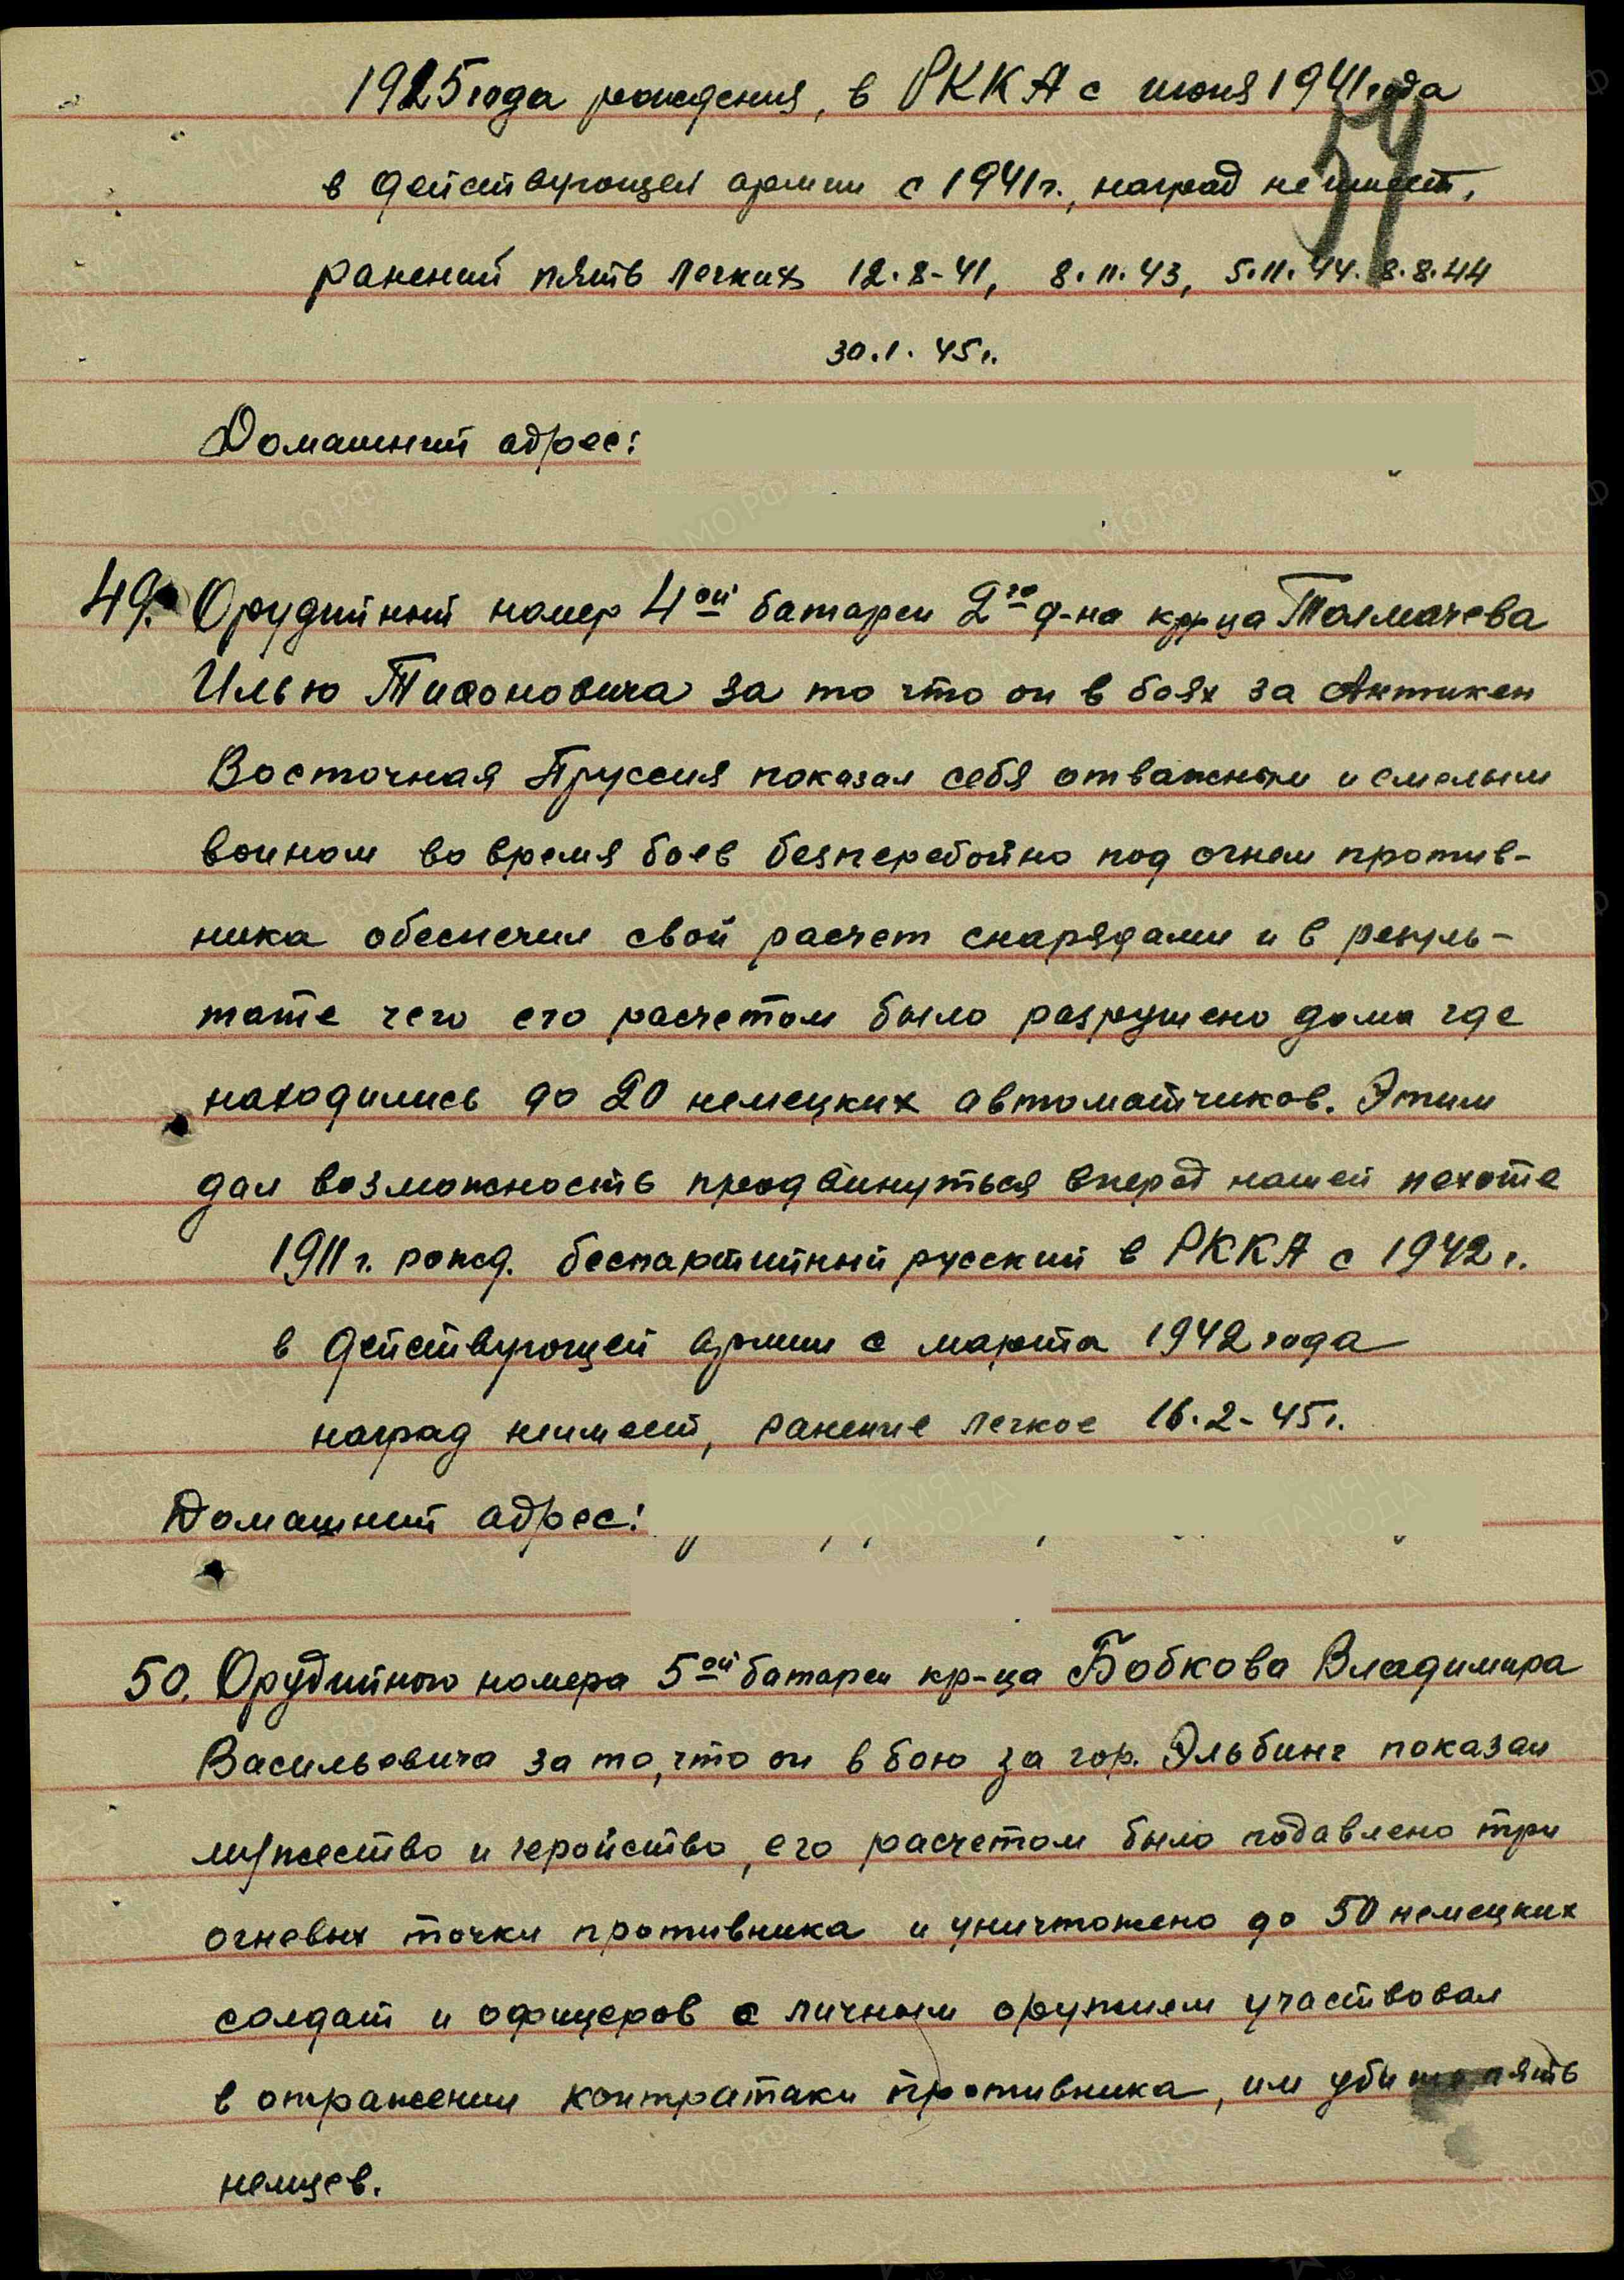 1925 года рождения, в РККА с июня 1941 года
59
в действующей армии с 1941 г., наград не имеет,
ранений пять легких 12.8-41, 8.11.43, 5.11.44. 8.8.44
30.1.45 г.
Домашний адрес:
49. Орудийный номер 4ой батареи 2го д-на кр-ца Толмачева
Илью Тихоновича за то что он в боях за
Восточная Пруссия показал себя отважным и смелым
воином во время боев безперебойно под огнем против-
ника обеспечил свой расчет снарядами и в резуль-
тате чего его расчетом было разрушено дома где
находились до 20 немецких автоматчиков. Этим
дал возможность продвинуться вперед нашей пехоте
1911 г. рожд. беспартийный русский в РККА с 1942 г.
в действующей армии с марта 1942 года
наград неимеет, ранение легкое 16.2-45 г.
Домашний адрес:
50. Орудийного номера 5ой батареи кр-ца Бобкова Владимира
Васильевича за то, что он в бою за гор. Эльбинг показал
мужество и геройство, его расчетом было подавлено три
огневых точки противника и уничтожено до 50 немецких
солдат и офицеров с личным оружием участвовал
в отражении контратаки противника, им убито пять
немцев.
ЦАМО.РФ
ПАМЯТЬ НАРОДА